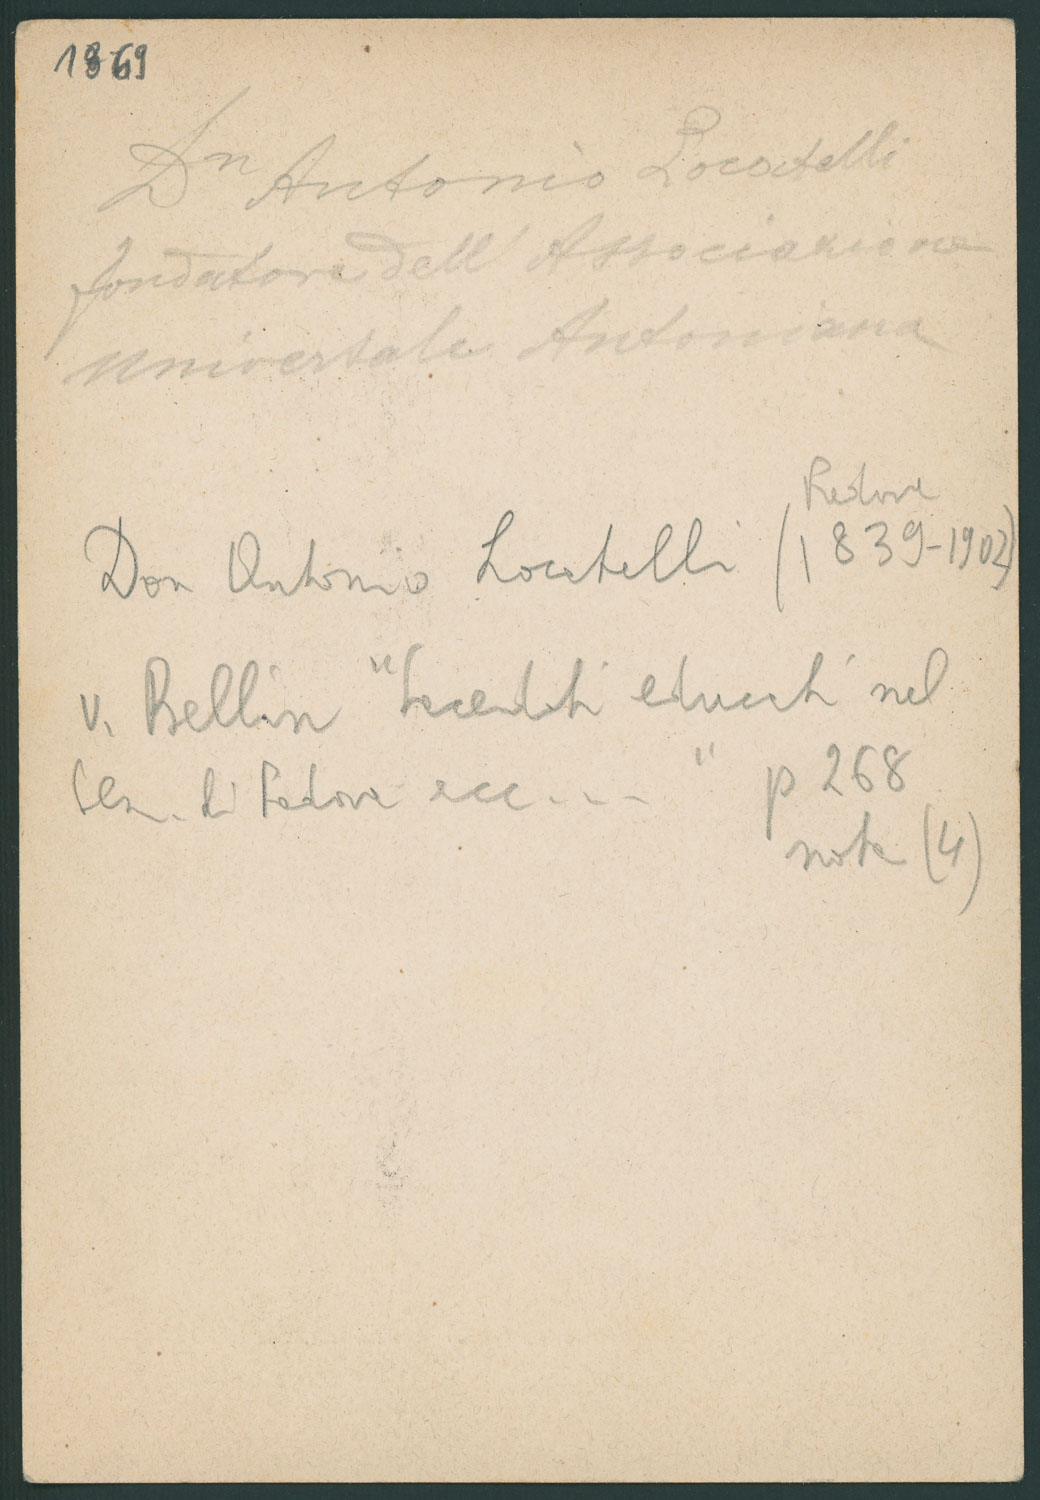 1869
Dn Antonio Locatelli
fondatore dell'Associazione
universale Antoniana
Padova
Don Antonio Locatelli (1839-1902)
v. Bellini "Sacerdoti educati nel
Sem. di Padova ecc...." p 268
nota (4)